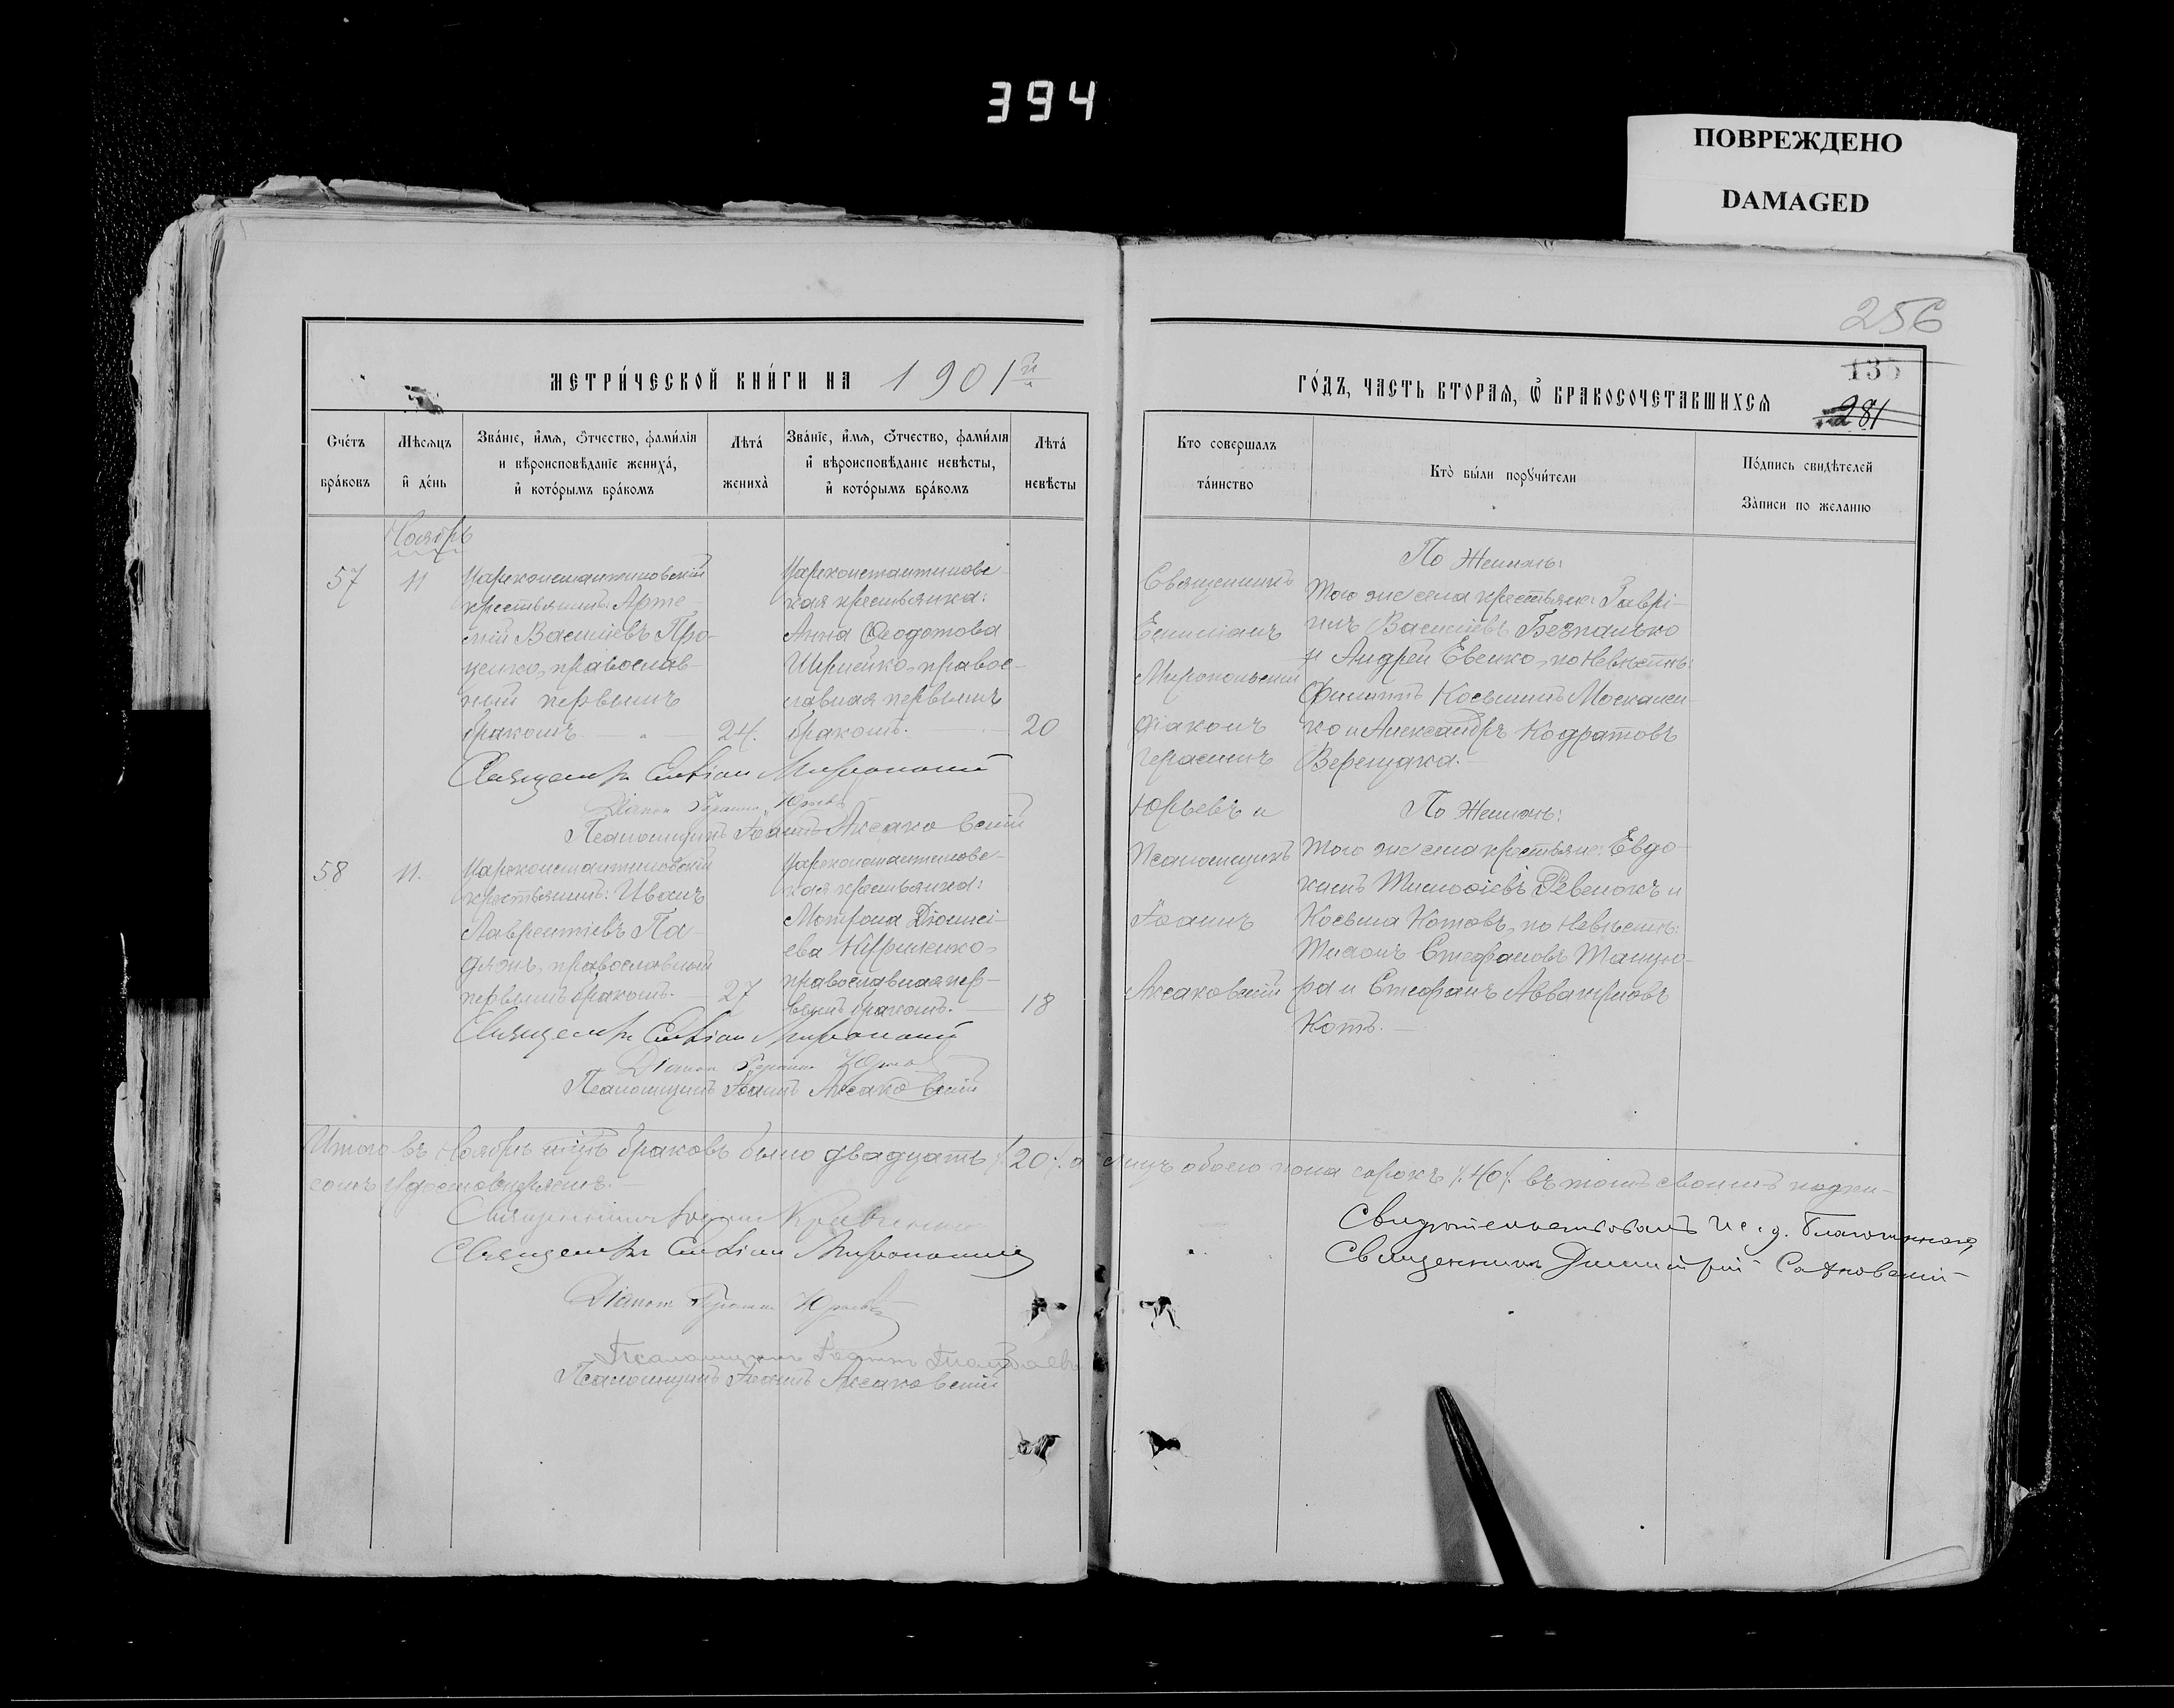 394
ПОВРЕЖДЕНО
DAMAGED
256
135
281
МЕТРИ́ЧЕСКОЙ КНИ́ГИ НА 1901й
ГО́ДЪ, ЧАСТЬ ВТОРАЯ, Ѽ БРАКОСОЧЕТАВШИХСЯ
Сче́тъ бра́ковъ
Мѣсяцъ и҆ де́нь
Зва́нїе, и҆́мя, ѻ҆́тчество, фами́лїя и вѣроисповѣ́данїе жениха́, и҆ кото́рымъ бра́комъ
Лѣта́ жениха̀
Зва́нїе, и҆́мя, ѻ҆́тчество, фами́лїя и҆ вѣроисповѣ́данїе невѣ́сты, и҆ кото́рымъ бра́комъ
Лѣта́ невѣ́сты
Кто соверша́лъ та́инство
Кто̀ бы́ли порꙋчи́тели
По́дпись свидѣ́телей За̀писи по жела́нїю
Ноябрь
57
11
Цареконстантиновскій
крестьянинъ: Арте-
мій Василіевъ Про-
ценко, православ-
ный первымъ
бракомъ.
24.
Цареконстантиновс-
кая крестьянка:
Анна Ѳеодотова
православ-
ная первымъ
бракомъ.
20
Священникъ
Емиліанъ
Миропольскій
Діаконъ
Герасимъ
Юрьевъ и
Псаломщикъ
Іоаннъ
Аксаковскій
По Женихѣ:
Того же села крестьяне: Гаврі-
илъ Василіевъ Безпалько
и Андрей Евенко, по Невѣстѣ:
Филиппъ Косьминъ Москален-
ко и Александръ Кодратовъ
Верещака.
Священникъ Емиліан Миропольскій
Діаконъ Герасимъ Юрьевъ
Псаломщикъ Іоаннъ Аксаковскій
58
11.
Цареконстантиновскій
крестьянинъ: Иванъ
Лаврентіевъ Па-
православный
первымъ бракомъ.
27
Цареконстантиновс-
кая крестьянка:
Матрона Діонисі-
ева
православная пер-
вымъ бракомъ.
18
По Женихѣ:
Того же села крестьяне: Евдо-
кимъ Тимоѳіевъ Ревенокъ и
Косьма Котовъ, по Невѣстѣ:
Стефановъ Танцю-
ра и Стефанъ Аввакумовъ
Котъ.
Священникъ Емиліан Миропольскій
Діаконъ Герасимъ Юрьевъ
Псаломщикъ Іоаннъ Аксаковскій
Итого въ Ноябрѣ мѣсяцѣ браковъ было двадцать /.20./. а лицъ обоего пола сорокъ /.40./. въ томъ своимъ подпи-
сомъ удостовѣряемъ.
Священникъ Кравченко
Священникъ Емиліан Миропольскій
Діаконъ Герасимъ Юрьевъ
Псаломщикъ Іоаннъ
Псаломщикъ Іоаннъ Аксаковскій
Свидѣтельствовалъ И. д. Благочиннаго,
Священникъ Димитрій